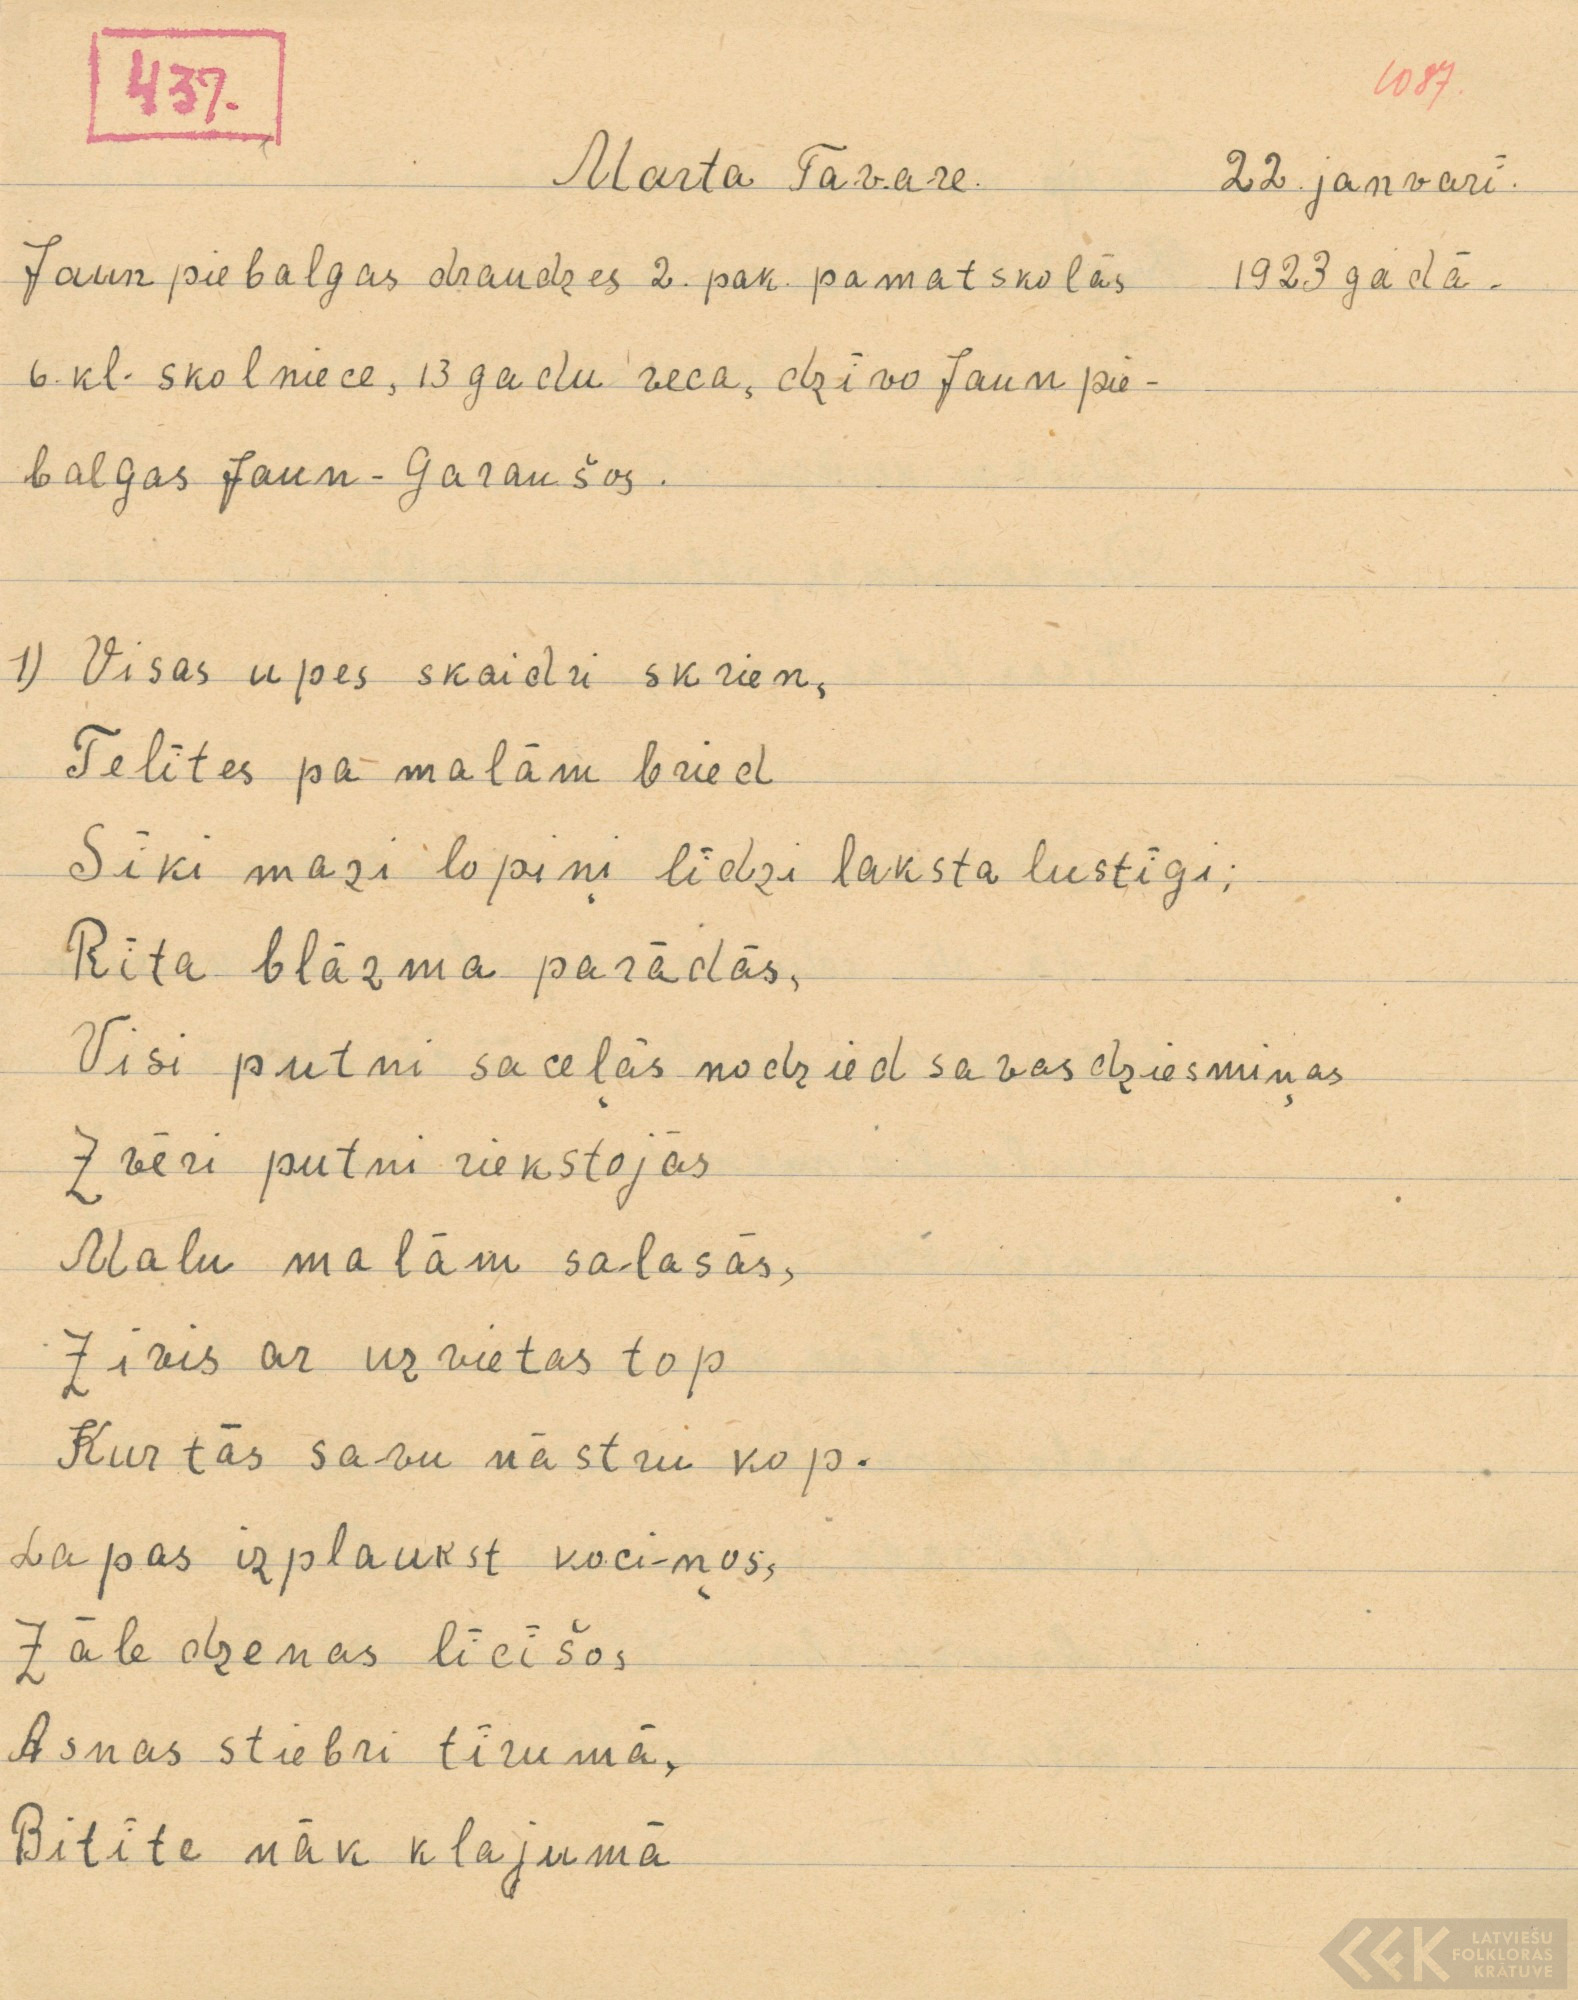 437.
1087.
Marta Tavare. 22. janvarī.
Jaunpiebalgas draudzes 2. pak. pamatskolās 1923 gadā.
6. kl. skolniece, 13 gadu veca, dzīvo Jaunpie-
balgas Jaun-Garaušos.
1) Visas upes skaidri skrien,
Telītes pa malām bried
Sīki mazi lopiņi līdzi laksta lustīgi;
Rīta blāzma parādās,
Visi putni saceļās nodzied savas dziesmiņas
Zvēri putni riekstojās
Malu malām salasās,
Zivis ar uz vietas top
Kurtās savu nāstru kop.
Lapas izplaukst kociņos,
Zāle dzenas līcīšos
Asnas stiebri tīrumā,
Bitīte nāk klajumā
LATVIEŠU
FOLKLORAS
KRĀTUVE